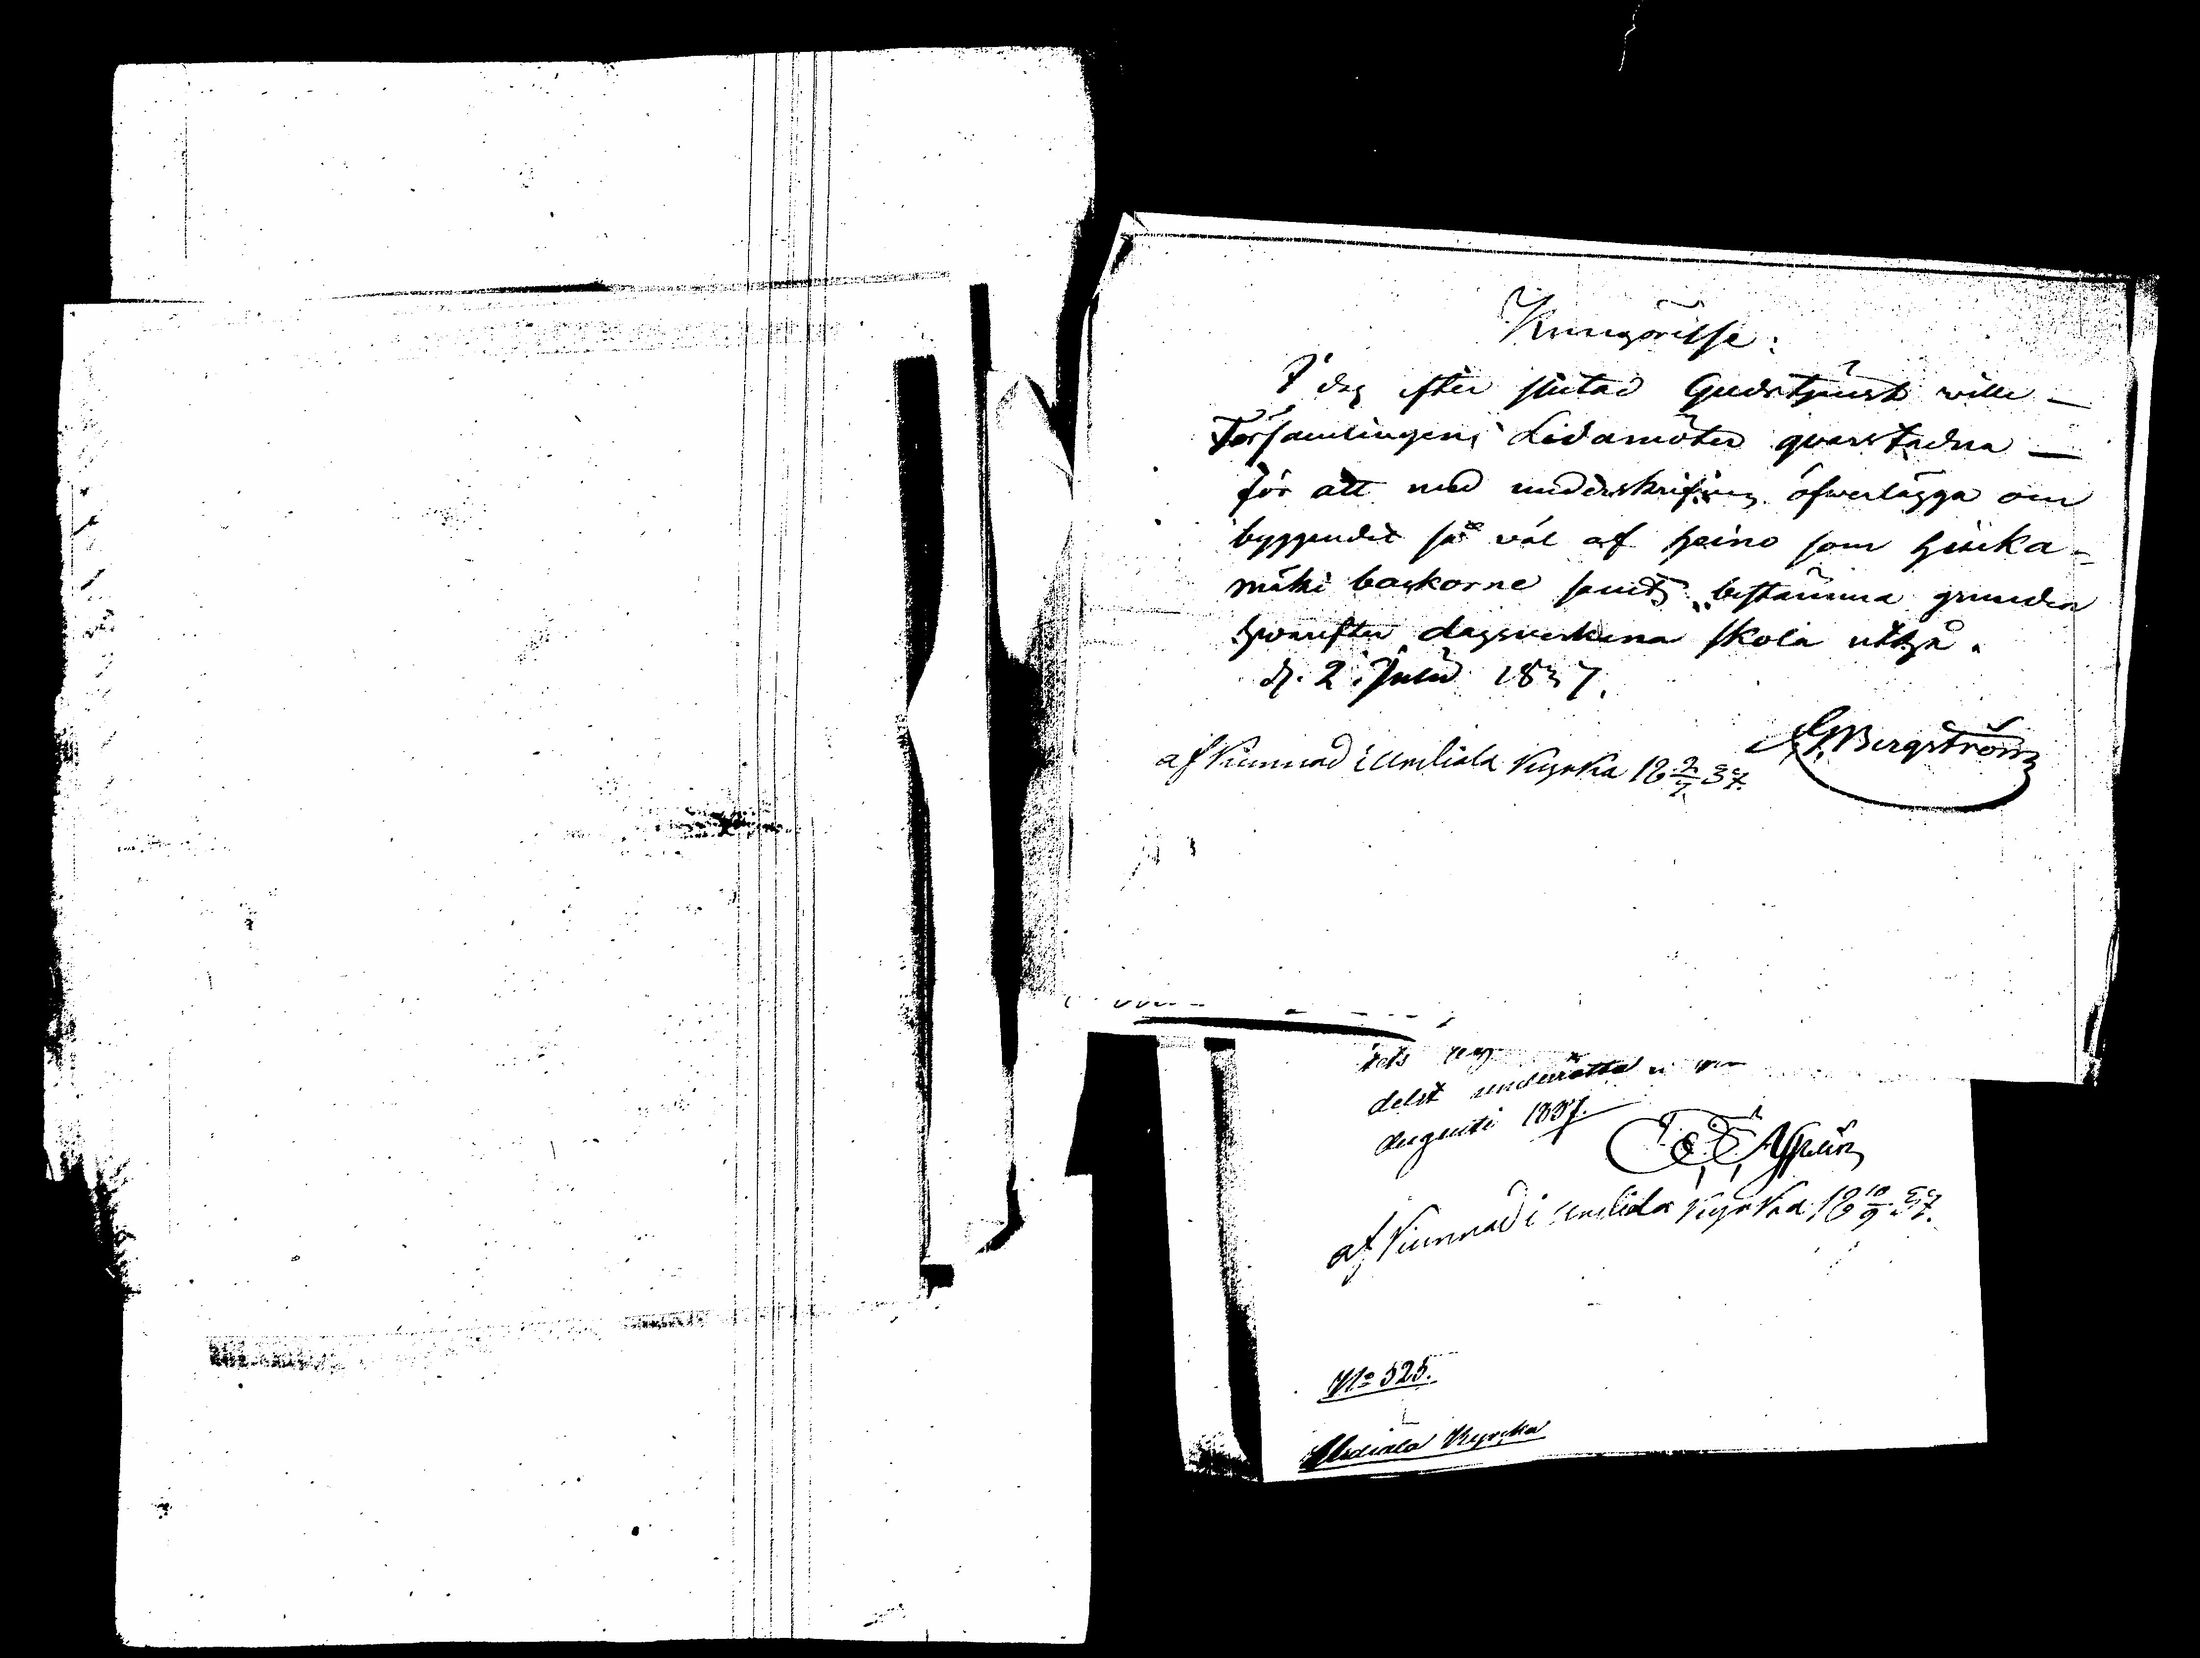 Kungörelse:
I dag efter slutad Gudstjenst wille
Församlingens Ledamöter qvarstadna
för att med underskrifven öfwerlägga om
byggendet så väl af Heino som Hiuka-
mäki backorne samt bestämma grunden
hvarefter dagsverkena skola utgå.
d. 2 Julii 1837.
G Bergström
afkunnad i Urdiala Kyrka 18 2/7 37.
delst underrätta
Augusti 1837.
afkunnad i Urdiala Kyrka 18 10/9 37.
No 525.
Urdiala Kyrcka